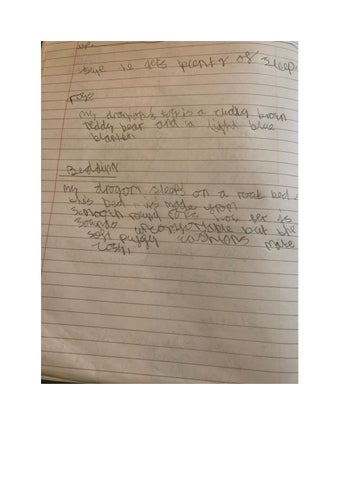 sure he gets plenty of sleep.
Toys
my dragon's toy is a cuddly brown
teddy bear and a light blue
blanket
Bedding
my dragon sleeps on a rock bed.
this bed is made from
smooth round
sounds uncomfortable but the
soft pudgy cushions make